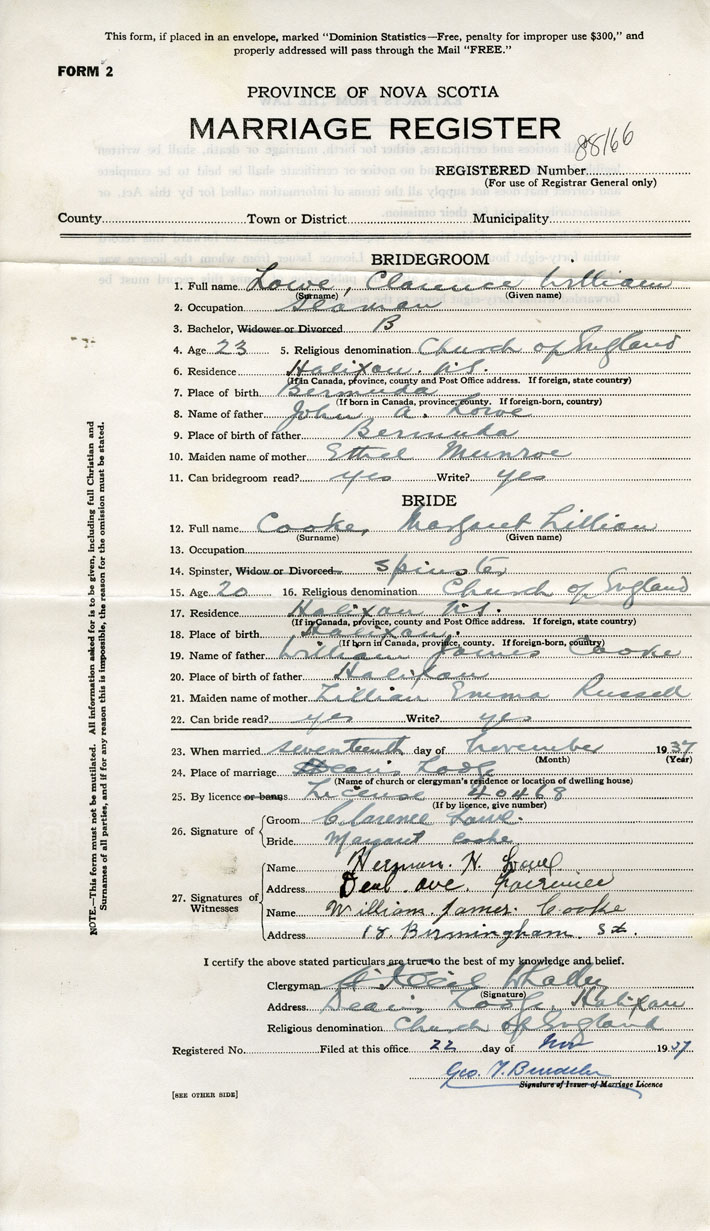 This form, if placed in an envelope, marked "Dominion Statistics—Free, penalty for improper use $300," and
properly addressed will pass through the Mail "FREE."
FORM 2
PROVINCE OF NOVA SCOTIA
MARRIAGE REGISTER
88166
REGISTERED Number
(For use of Registrar General only)
County Town or District Municipality
BRIDEGROOM
1. Full name Lowe, Clarence William
(Surname) (Given name)
2. Occupation Seaman
3. Bachelor, Widower or Divorced B
4. Age 23 5. Religious denomination Church of England
6. Residence Halifax N.S.
(If in Canada, province, county and Post Office address. If foreign, state country)
7. Place of birth Bermuda
(If born in Canada, province, county. If foreign-born, country)
8. Name of father John A. Lowe
9. Place of birth of father Bermuda
10. Maiden name of mother Ethel Munroe
11. Can bridegroom read? yes Write? yes
BRIDE
12. Full name Cooke, Margaret Lillian
(Surname) (Given name)
13. Occupation
14. Spinster, Widow or Divorced Spinster
15. Age 20 16. Religious denomination Church of England
17. Residence Halifax N.S.
(If in Canada, province, county and Post Office address. If foreign, state country)
18. Place of birth Halifax
(If born in Canada, province, county. If foreign-born, country)
19. Name of father William James Cooke
20. Place of birth of father Halifax
21. Maiden name of mother Lillian Emma Russell
22. Can bride read? yes Write? yes
23. When married seventeenth day of November 1937
(Month) (Year)
24. Place of marriage
(Name of church or clergyman's residence or location of dwelling house)
25. By licence or banns License 40468
(If by licence, give number)
26. Signature of
Groom Clarence Lowe.
Bride Margaret Cooke
27. Signatures of Witnesses
Name Herman. H. Lowe
Address ave.
Name William James Cooke
Address 18 Birmingham St.
I certify the above stated particulars are true to the best of my knowledge and belief.
Clergyman
(Signature)
Address Halifax
Religious denomination Church of England
Registered No. Filed at this office 22 day of Nov 1937
Geo.
Signature of Issuer of Marriage Licence
[SEE OTHER SIDE]
NOTE.—This form must not be mutilated. All information asked for is to be given, including full Christian and
Surnames of all parties, and if for any reason this is impossible, the reason for the omission must be stated.